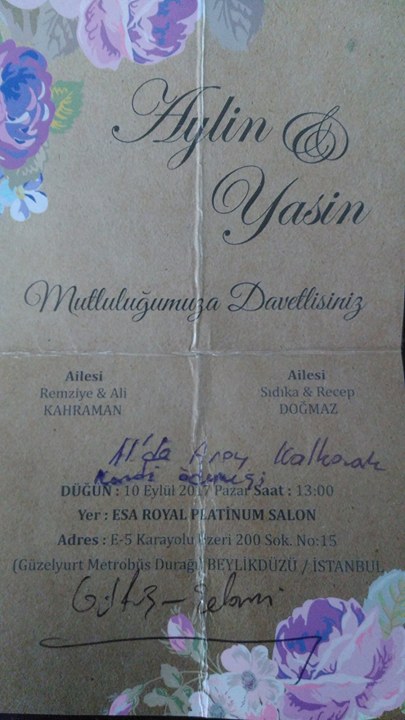 Aylin &
Yasin
Mutluluğumuza Davetlisiniz
Ailesi
Remziye & Ali
KAHRAMAN
Ailesi
Sıdıka & Recep
DOĞMAZ
11'da Araç Kalkacak
DÜĞÜN : 10 Eylül 2017 Pazar Saat : 13:00
Yer : ESA ROYAL PLATİNUM SALON
Adres : E-5 Karayolu Üzeri 200 Sok. No:15
(Güzelyurt Metrobüs Durağı) BEYLİKDÜZÜ / İSTANBUL